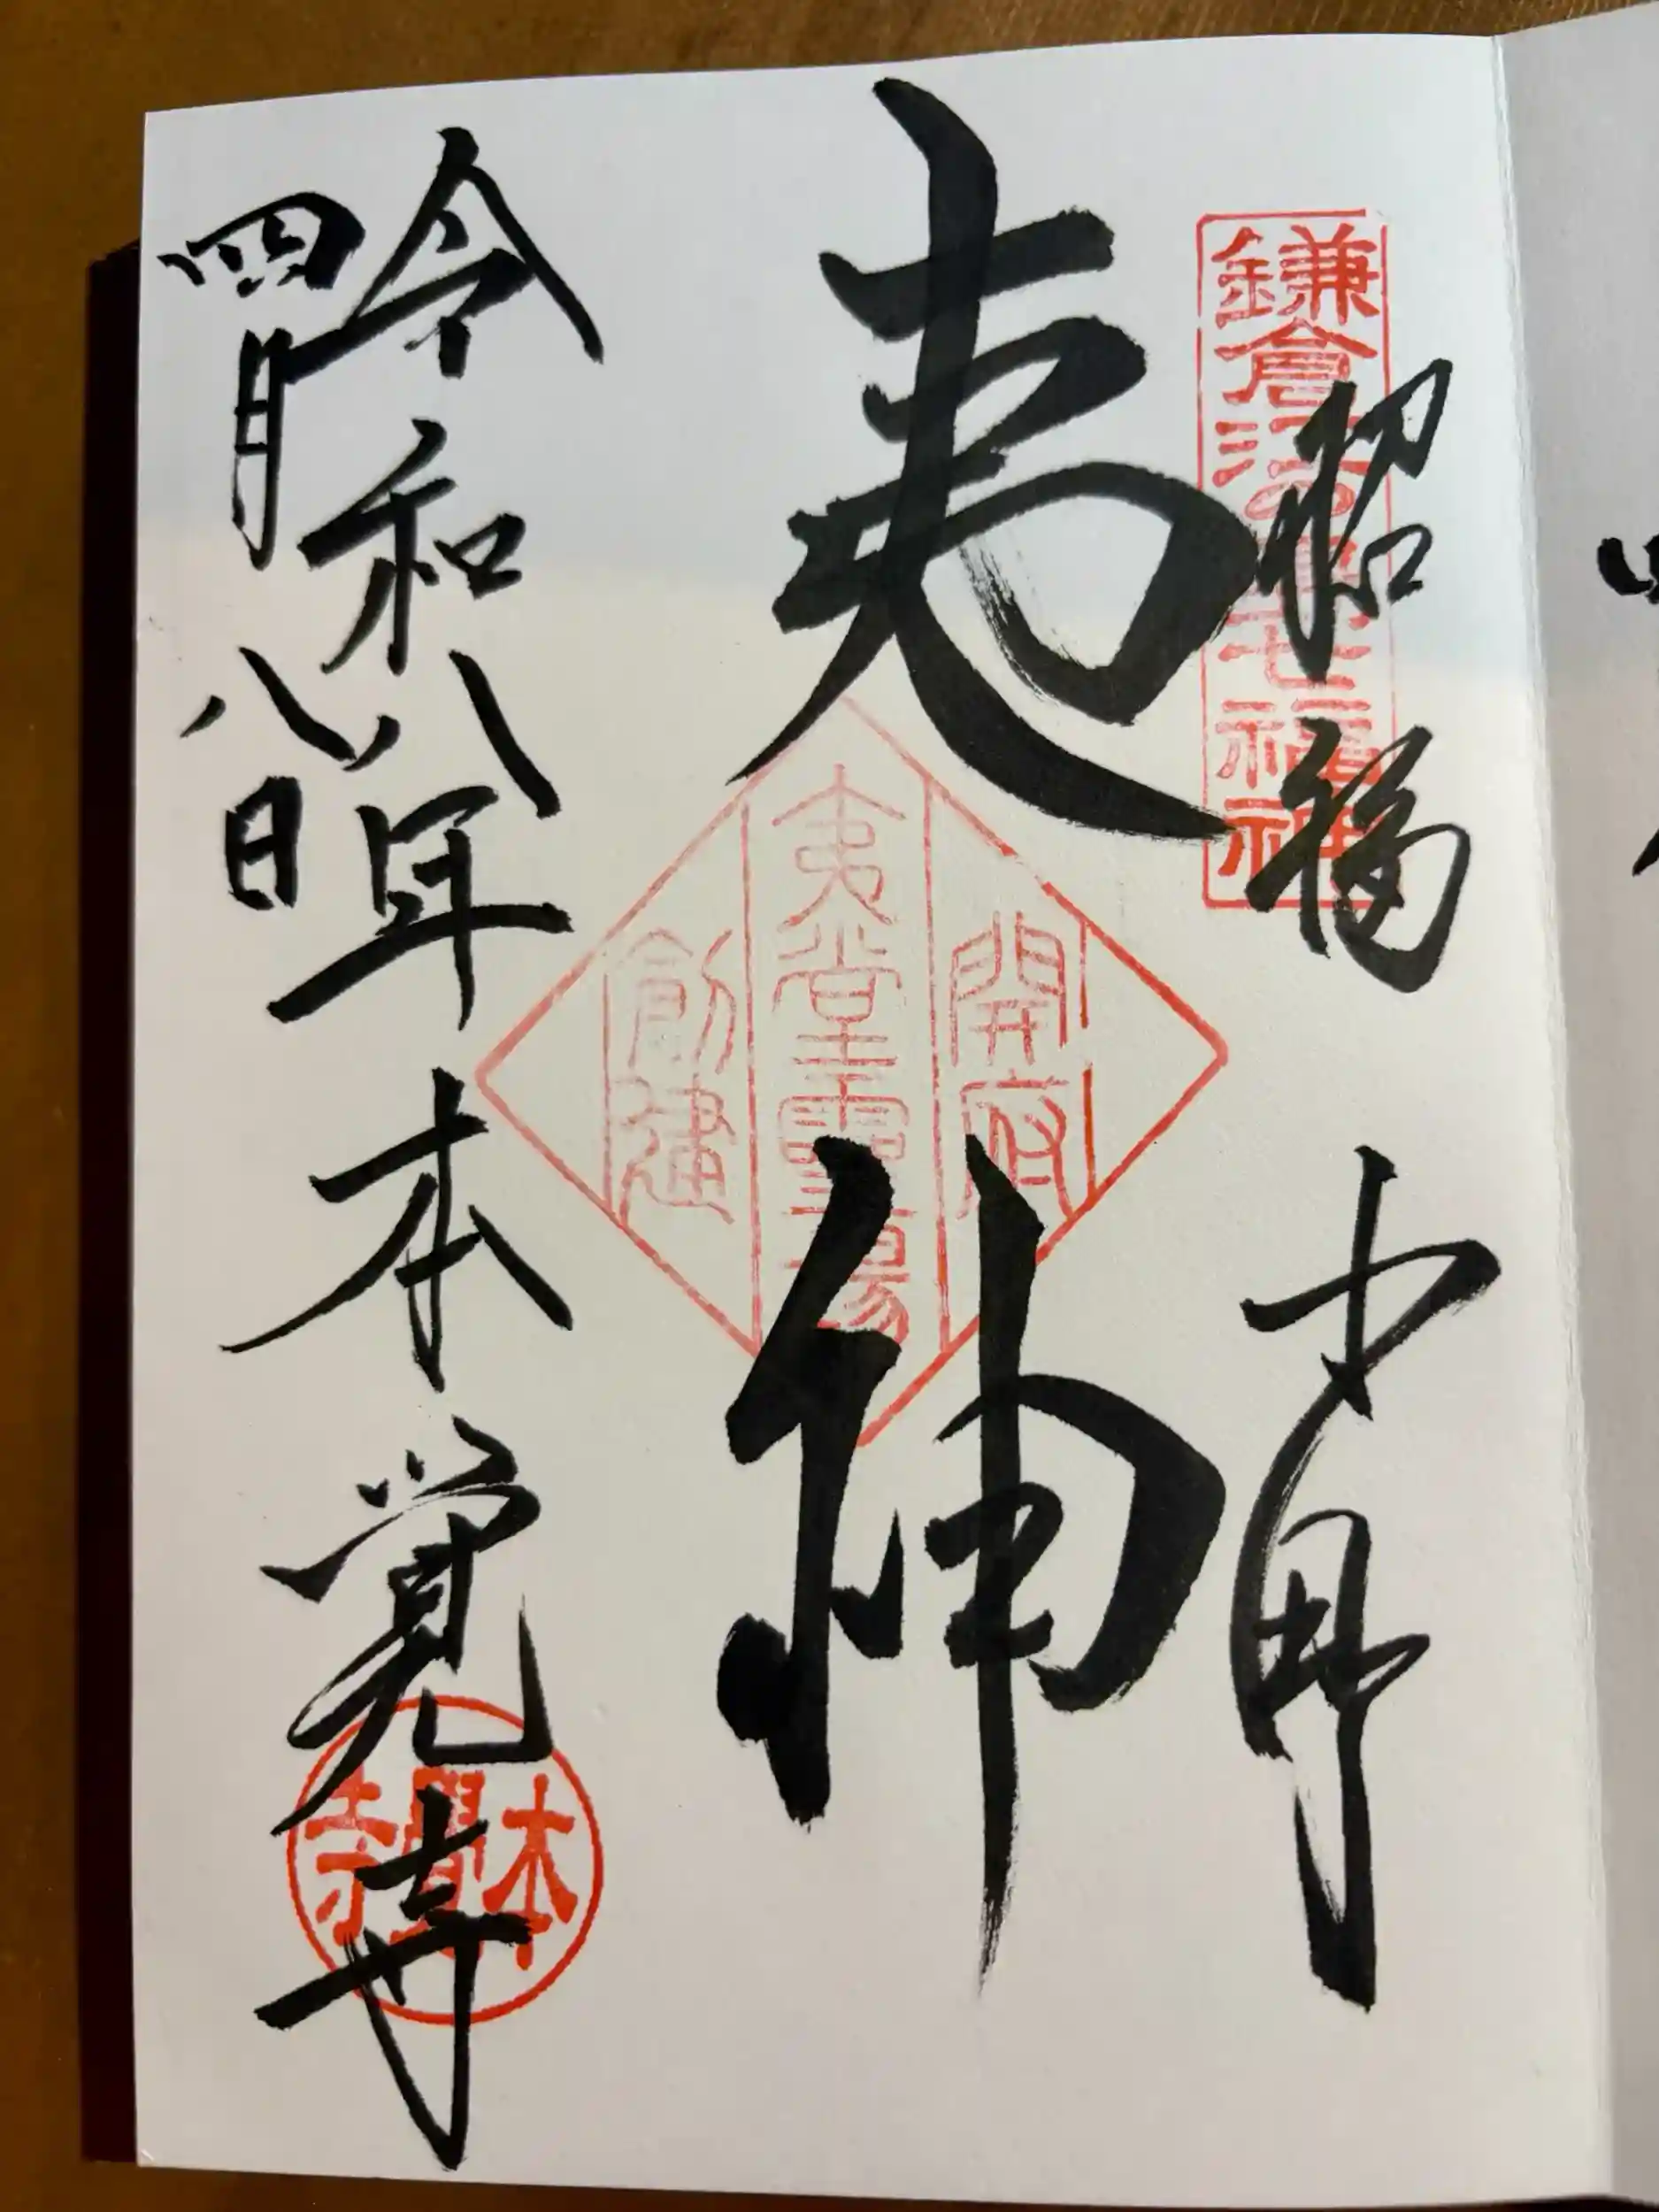 鎌倉江の島七福神
招福
夷神
開府
夷堂霊場
創建
令和八年本覚寺
四月八日
本覺寺